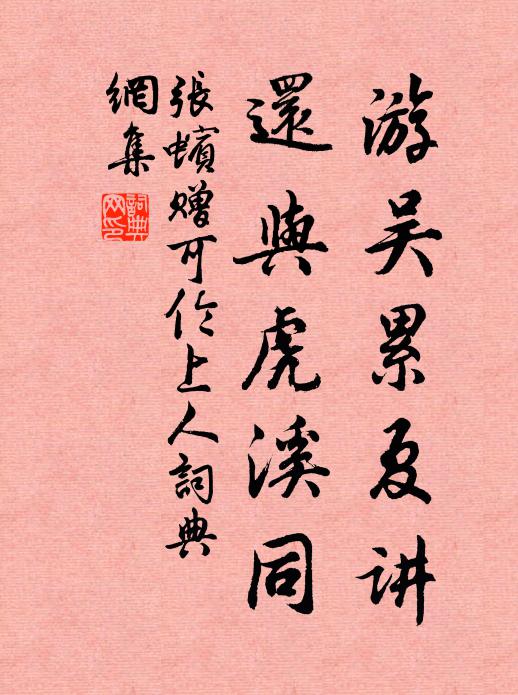 游吴累夏讲
還與虎溪同
張蠙赠可伶上人詞典
網集
詞典
网印